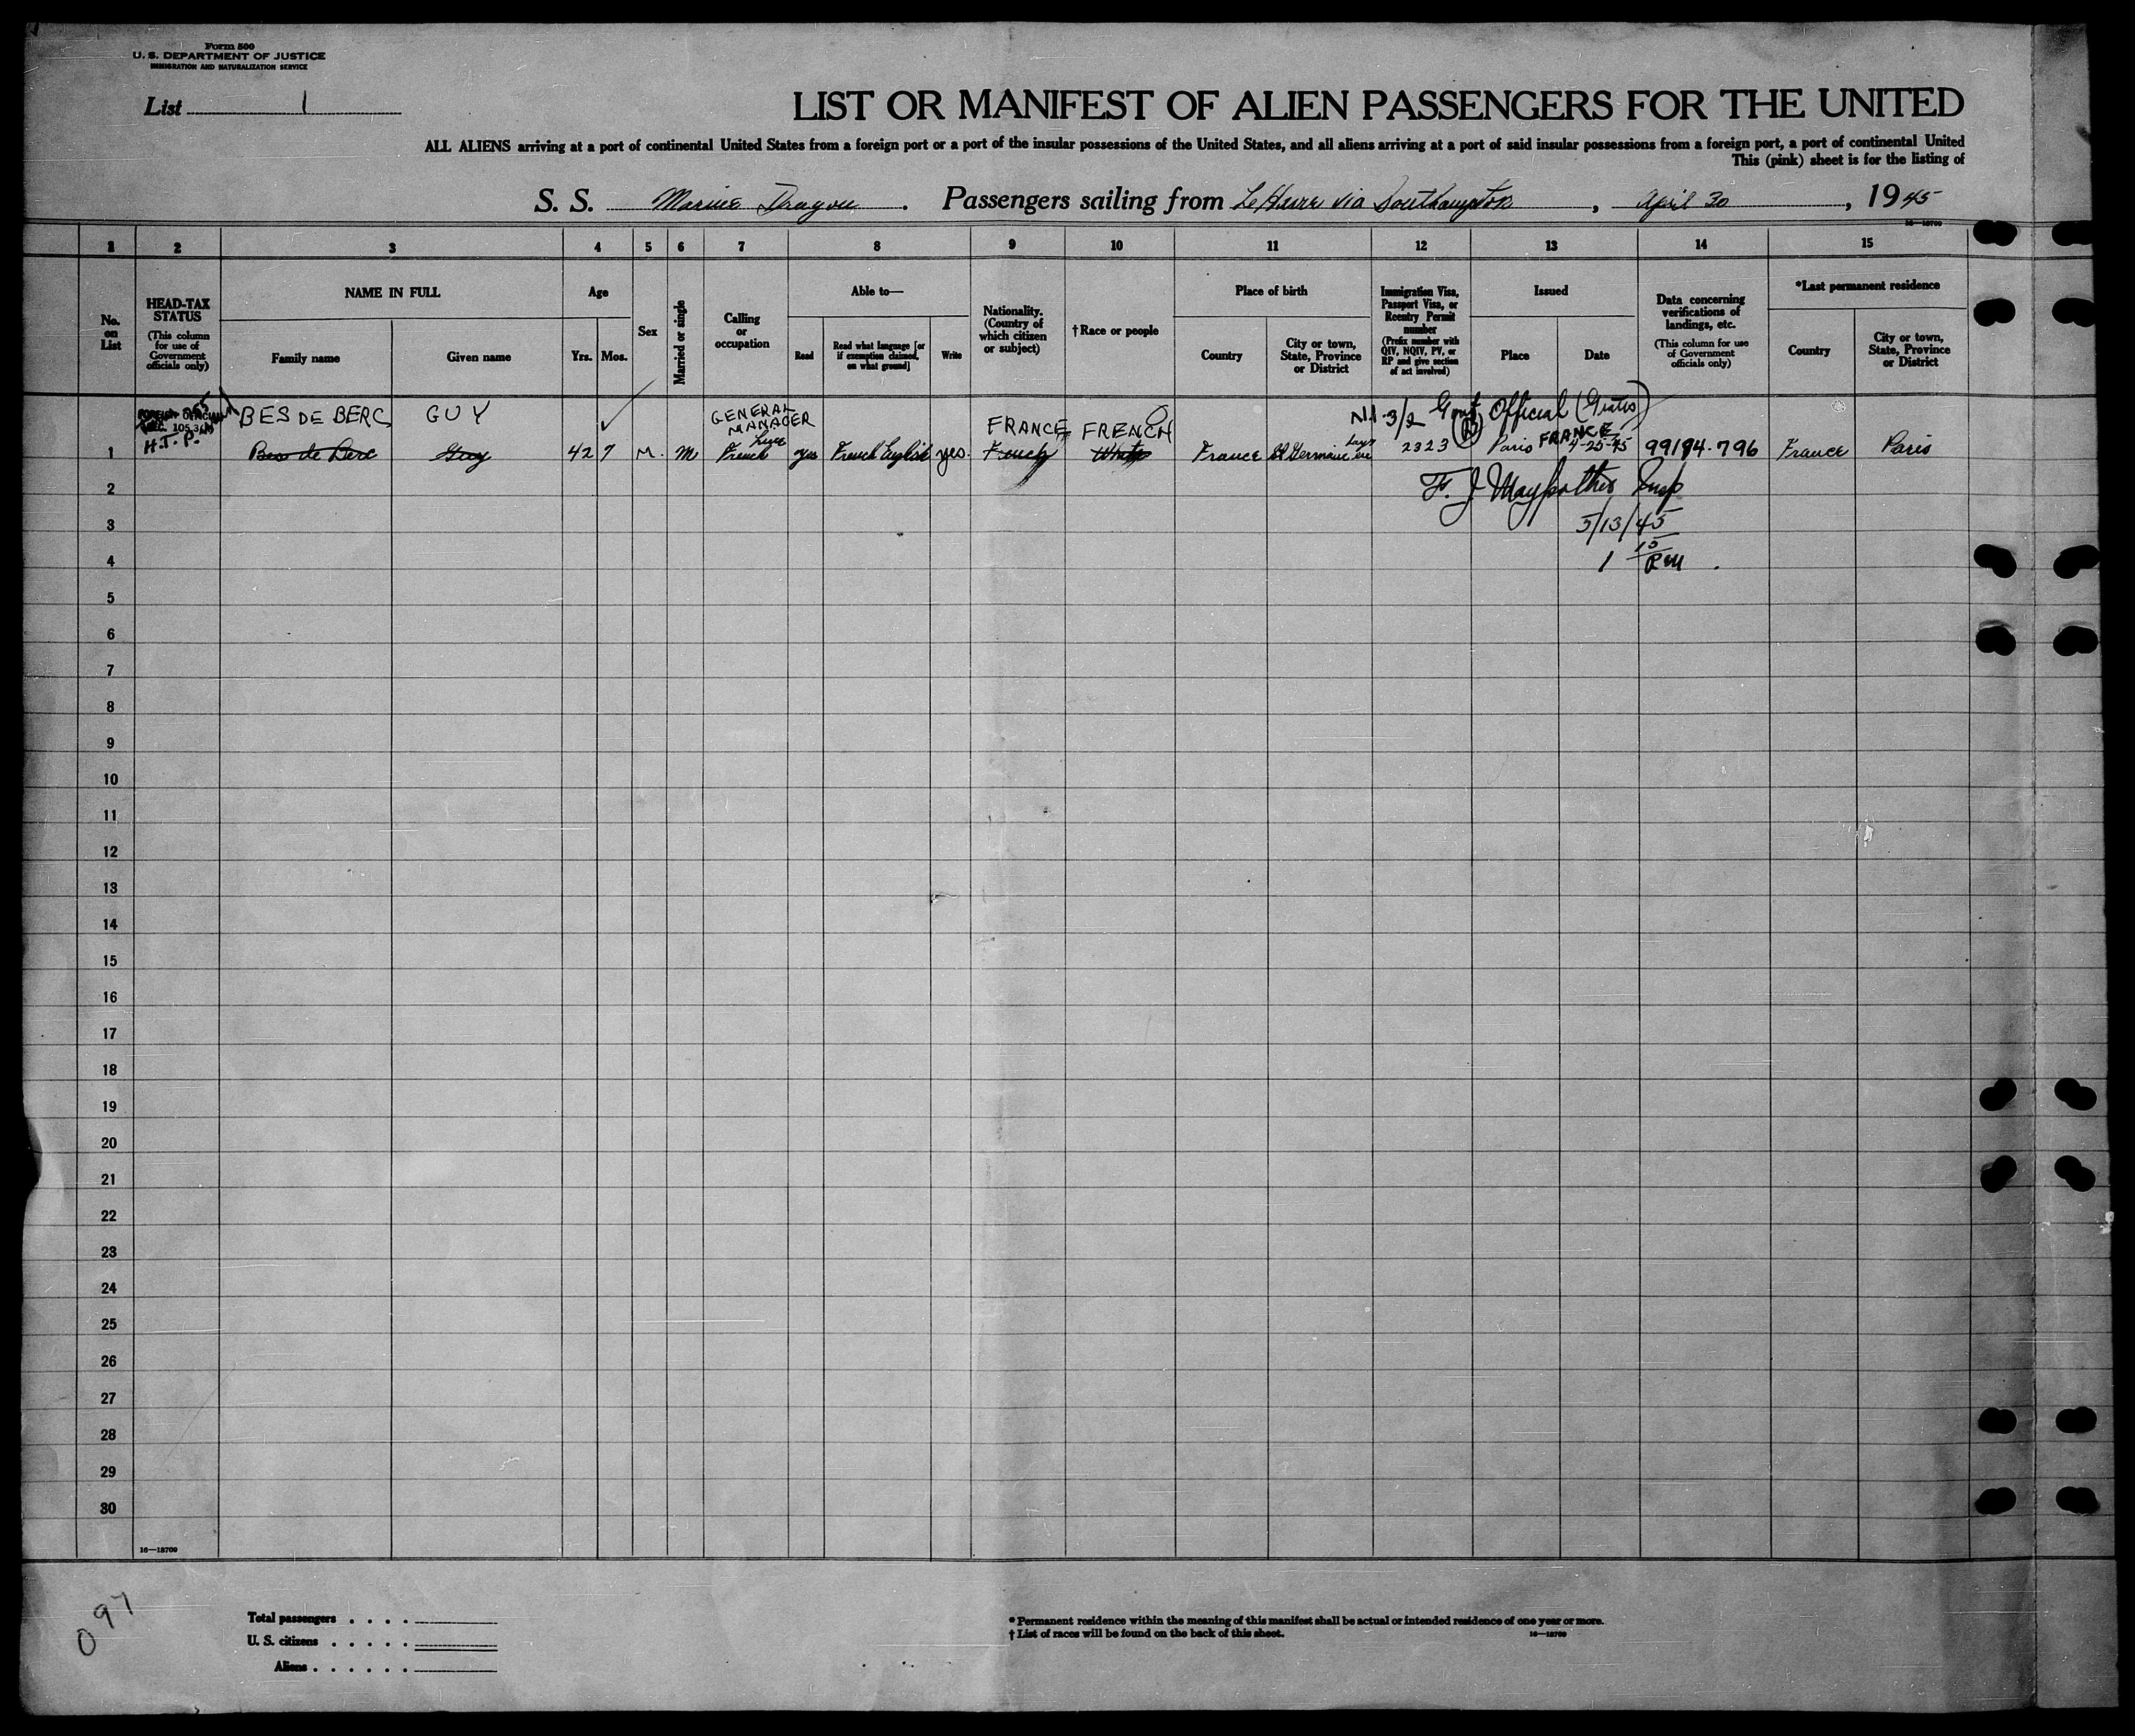 Form 500
U. S. DEPARTMENT OF JUSTICE
IMMIGRATION AND NATURALIZATION SERVICE
List 1
LIST OR MANIFEST OF ALIEN PASSENGERS FOR THE UNITED
ALL ALIENS arriving at a port of continental United States from a foreign port or a port of the insular possessions of the United States, and all aliens arriving at a port of said insular possessions from a foreign port, a port of continental United
This (pink) sheet is for the listing of
S. S. Marine Dragon . Passengers sailing from Le Havre via Southampton , April 30 , 1945
16—18709
1 2 3 4 5 6 7 8 9 10 11 12 13 14 15
No. on List
HEAD-TAX STATUS
(This column for use of Government officials only)
NAME IN FULL
Family name
Given name
Age
Yrs. Mos.
Sex
Married or single
Calling or occupation
Able to—
Read
Read what language [or if exemption claimed, on what ground]
Write
Nationality. (Country of which citizen or subject)
†Race or people
Place of birth
Country
City or town, State, Province or District
Immigration Visa, Passport Visa, or Reentry Permit number
(Prefix number with QIV, NQIV, PV, or RP and give section of act involved)
Issued
Place
Date
Data concerning verifications of landings, etc.
(This column for use of Government officials only)
*Last permanent residence
Country
City or town, State, Province or District
FOREIGN OFFICIAL
105.3
H.T.P.
BES DE BERC GUY GENERAL MANAGER FRANCE FRENCH N.I. 3/2 Govt Official (Gratis)
1 Bes de Berc Guy 42 7 M. M French yes French English yes. French White France St Germain en Laye 2323 Paris FRANCE 4-25-45 99194-796 France Paris
2 F. J. Insp
3 5/13/45
4 1 15 PM
5
6
7
8
9
10
11
12
13
14
15
16
17
18
19
20
21
22
23
24
25
26
27
28
29
30
16—18709
097
Total passengers . . . .
U. S. citizens . . . . .
Aliens . . . . . .
* Permanent residence within the meaning of this manifest shall be actual or intended residence of one year or more.
† List of races will be found on the back of this sheet.
16—18709